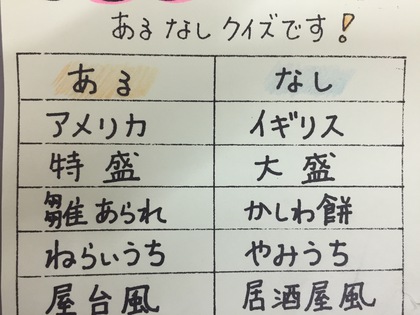 あるなしクイズです!
ある なし
アメリカ イギリス
特盛 大盛
雛あられ かしわ餅
ねらいうち やみうち
屋台風 居酒屋風